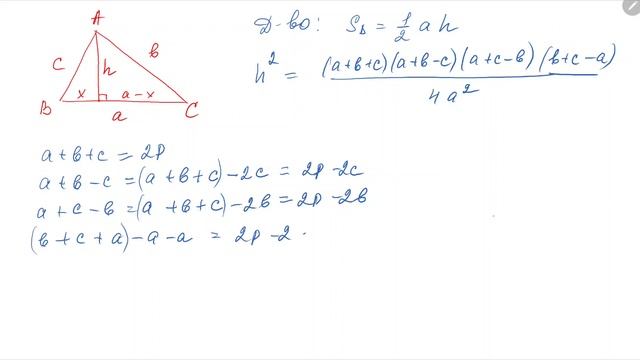 A
c
b
h
B
x
a-x
C
a
Д-во: S_Δ = 1/2 a h
h² = (a+b+c)(a+b-c)(a+c-b)(b+c-a) / 4a²
a+b+c = 2p
a+b-c = (a+b+c)-2c = 2p-2c
a+c-b = (a+b+c)-2b = 2p-2b
(b+c+a)-a-a = 2p-2